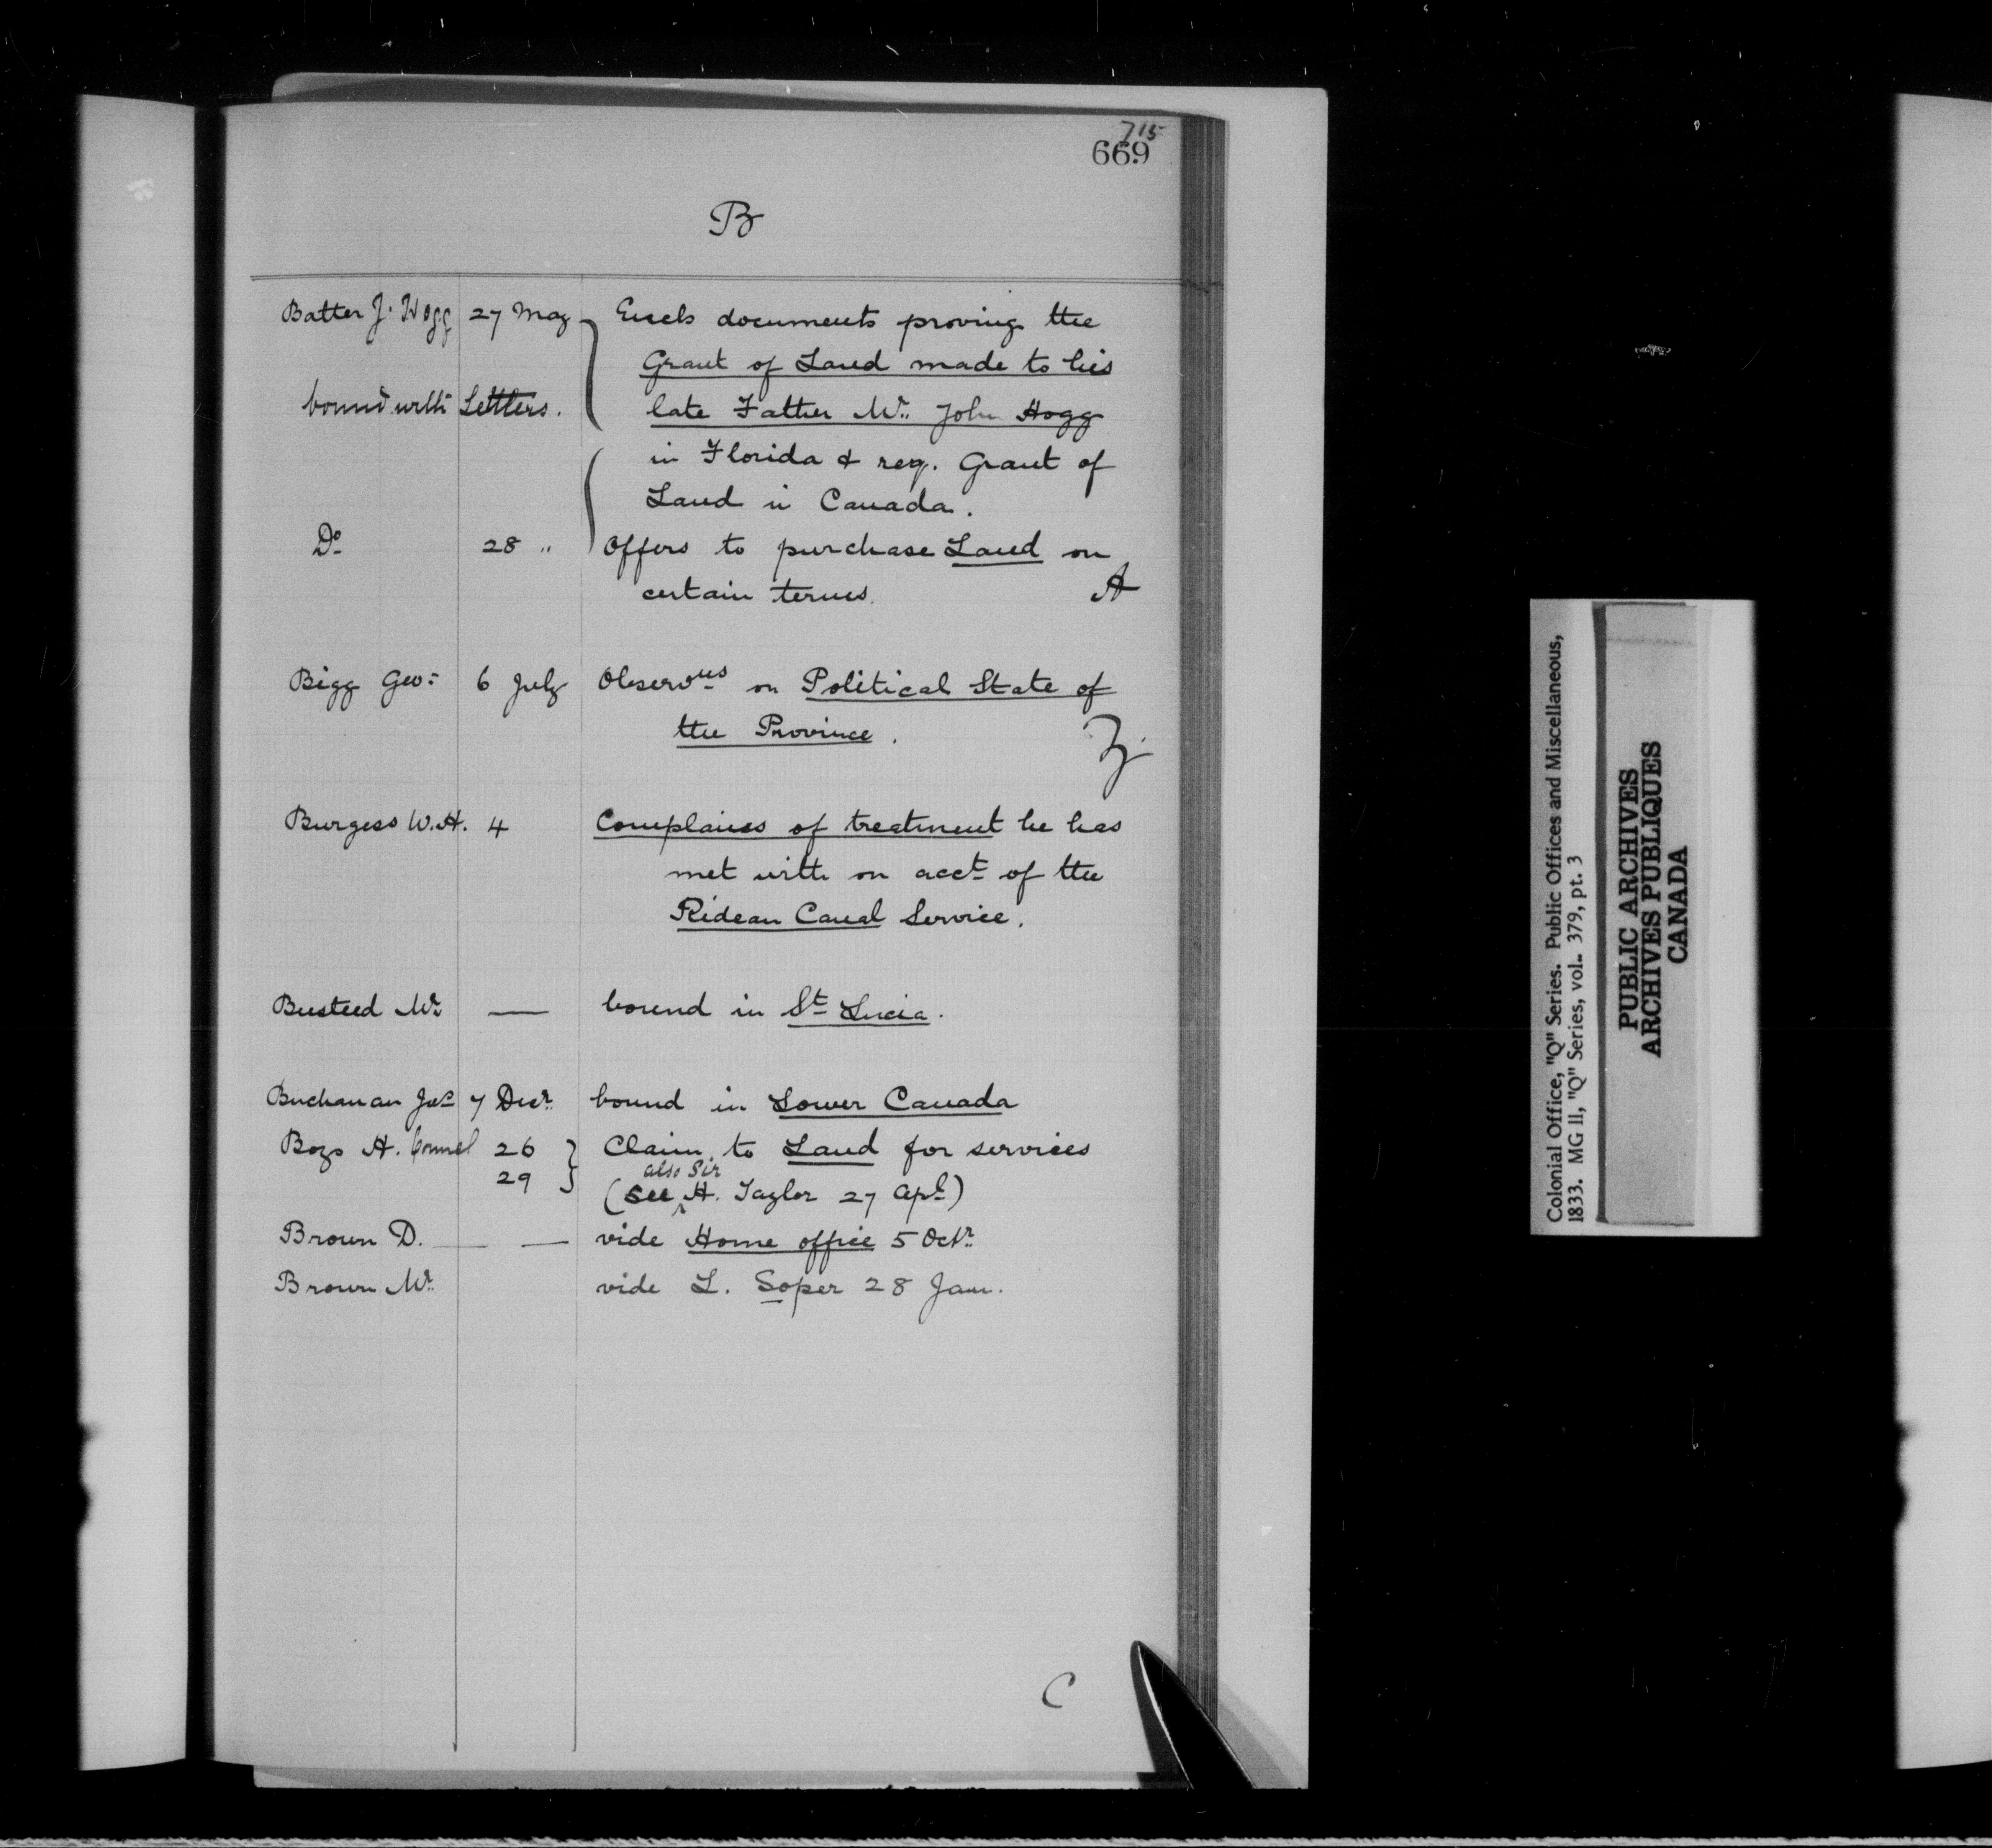 715
669
B
Batter J. Hogg 27 May Encls documents proving the
Grant of Land made to his
bound with Settlers. late Father Mr. John Hogg
in Florida & req. Grant of
Land in Canada.
Do 28 " Offers to purchase Land on
certain terms. A
Bigg Geo: 6 July Observns on Political State of
the Province.
Burgess W.H. 4 Complains of treatment he has
met with on acct of the
Rideau Canal Service.
Busteed Mr. — bound in St Lucia.
Buchanan Jas 7 Decr. bound in Lower Canada
26 Claim to Land for services
29 (see also Sir H. Taylor 27 Apl)
Brown D. — — vide Home office 5 Octr.
Brown Mr. vide L. Soper 28 Jan.
C
Colonial Office, "Q" Series. Public Offices and Miscellaneous,
1833. MG 11, "Q" Series, vol. 379, pt. 3
PUBLIC ARCHIVES
ARCHIVES PUBLIQUES
CANADA